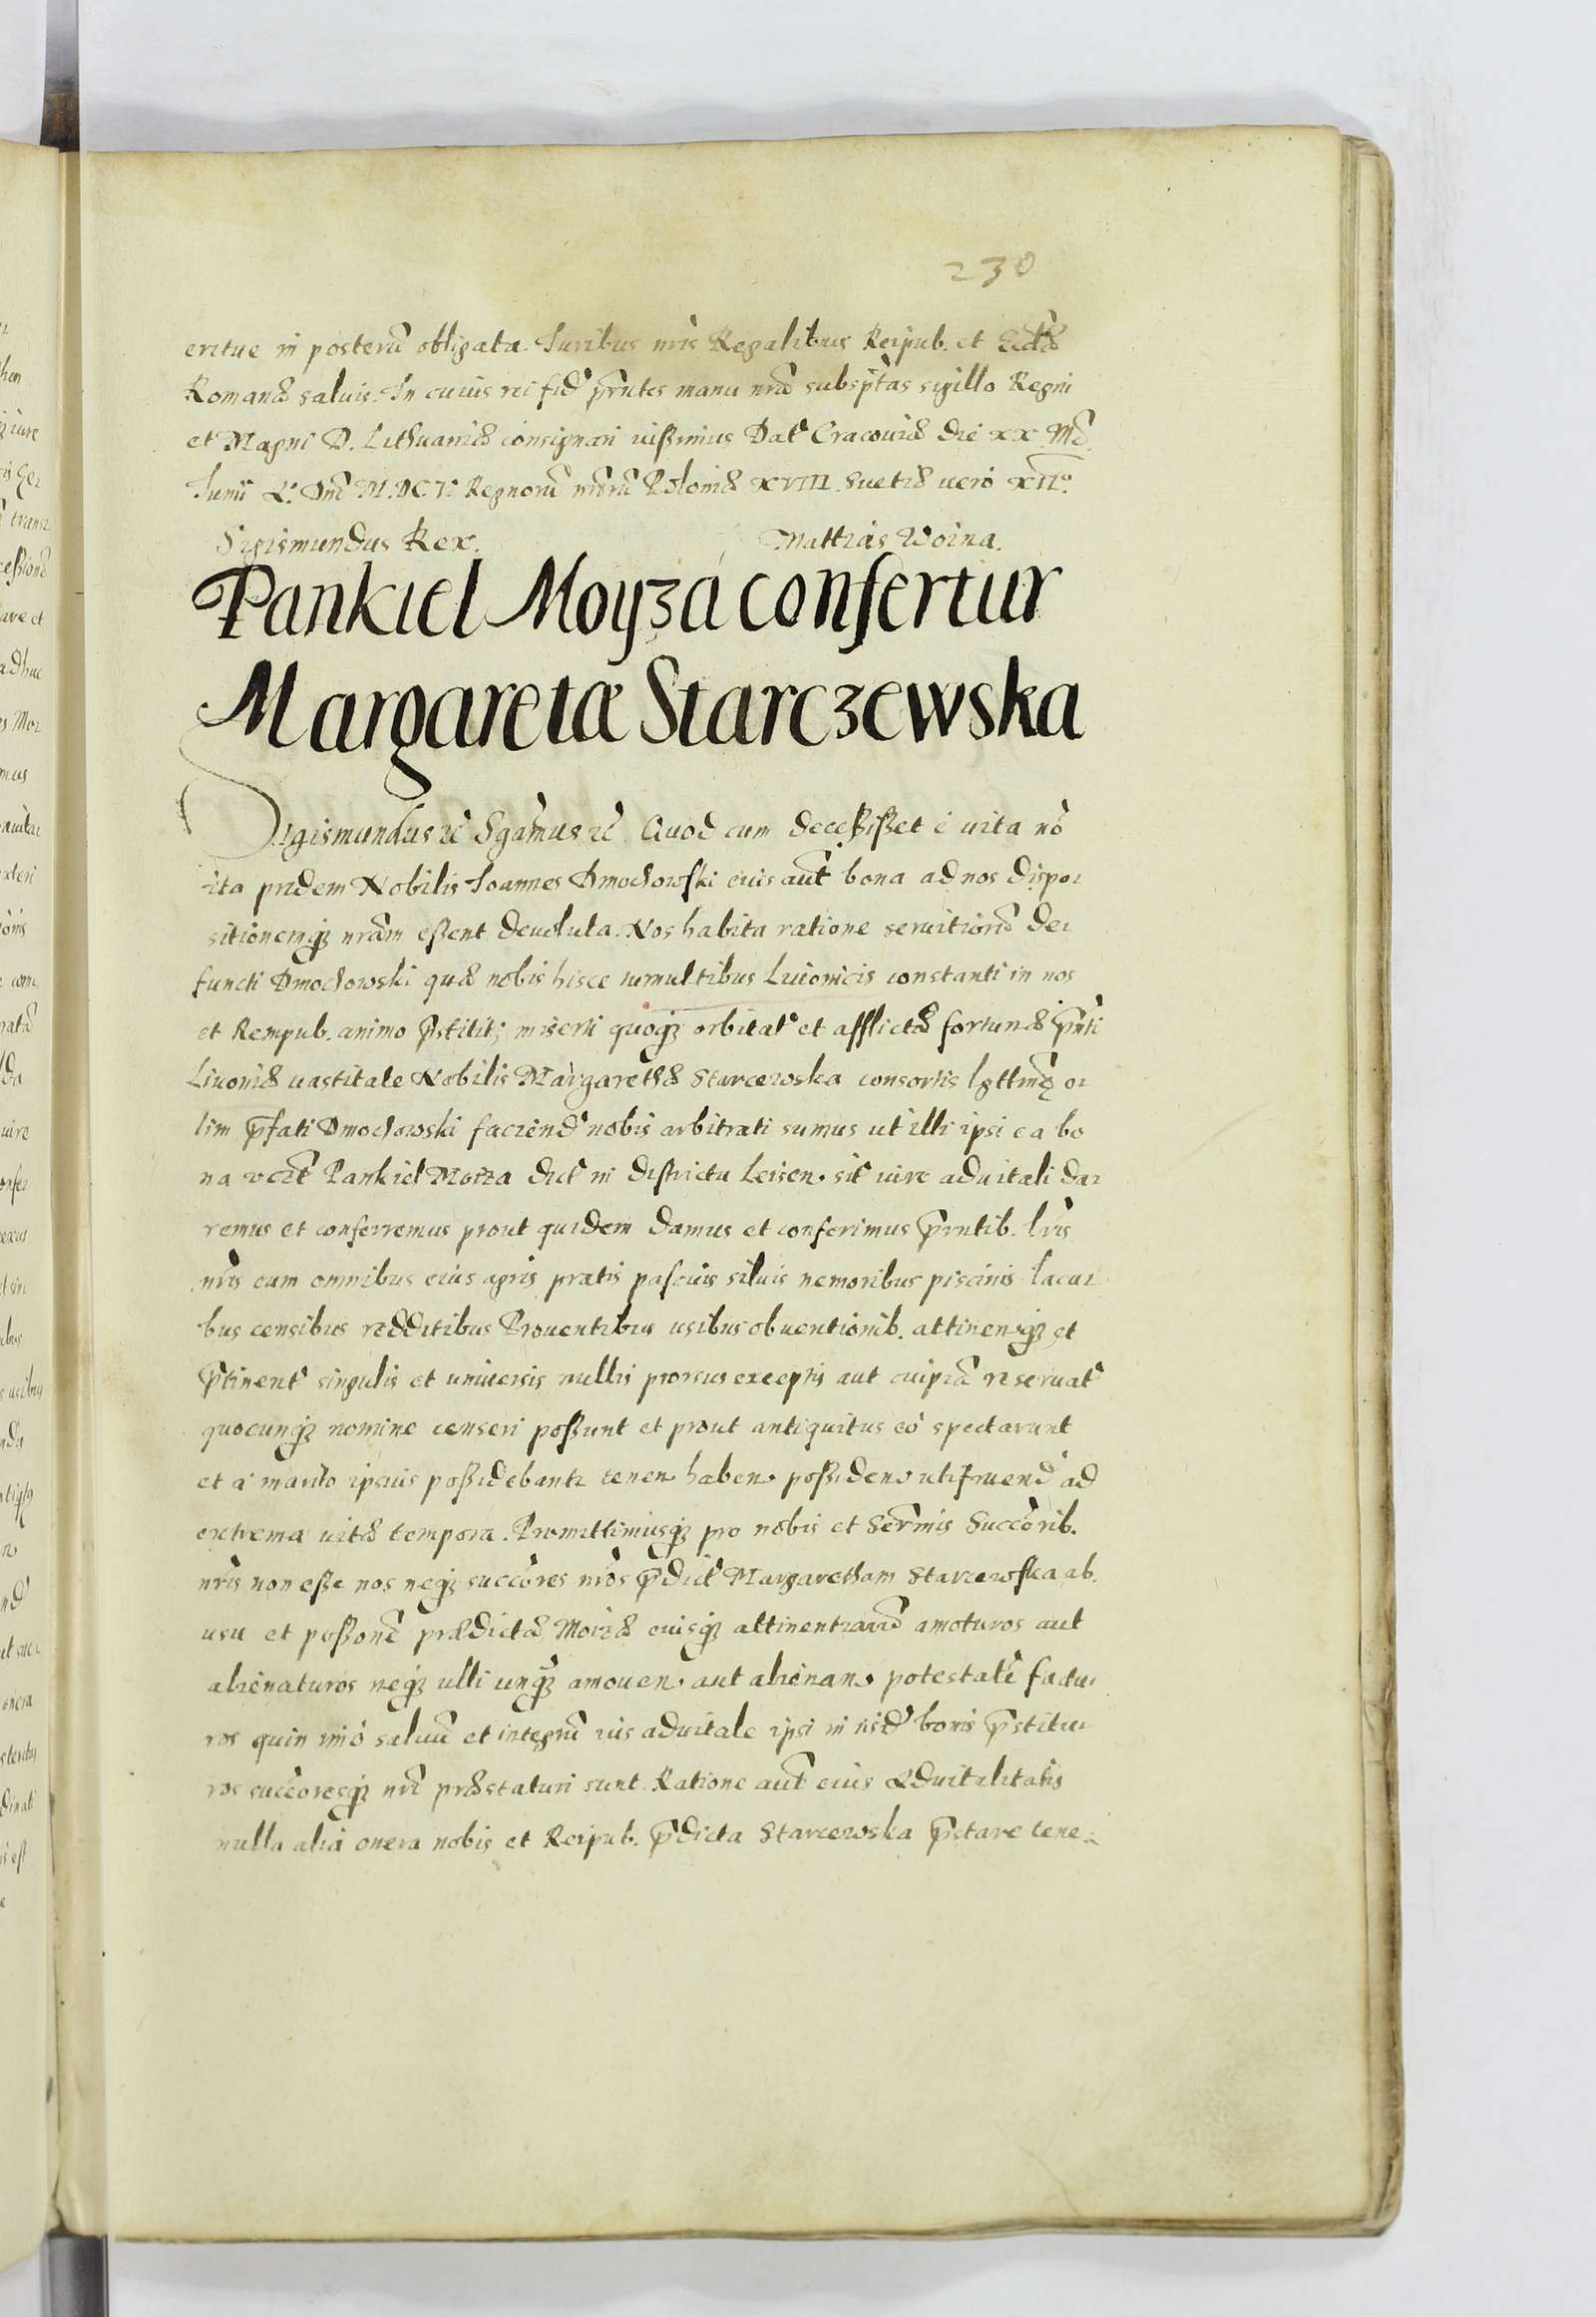 230
eritue in posterũ obligata. Iuribus nris Regalibus Reipub. et Ecclæ
Romanæ saluis. In cuius rei fid' p̃ntes manu nrã subsp̃tas sigillo Regni
et Magni D. Lithuaniæ consignari iussimus Dat' Cracouiæ die XX M̃
Iunii A.º Dñi M.DCV Regnorũ nrorũ Poloniæ XVIII. Suetiæ uero XIIº.
Sigismundus Rex. Matthias Woina.
Pankiel Moyza confertur
Margaretæ Starczewska
Sigismundus &c̃ Sgamus &c̃ Quod cum decessisset è uita nõ
ita pridem Nobilis Ioannes Dmochowski cuius aut̃ bona ad nos dispo-
sitionemq₃ nrãm essent deuoluta. Nos habita ratione seruitiorũ de-
functi Dmochowski quæ nobis hisce tumultibus Liuonicis constanti in nos
et Rempub. animo p̃stitit; miserti quoq₃ orbitat' et afflictæ fortunæ p̃nti
Liuoniæ uastitate Nobilis Margarethæ Starcewska consortis lgttmę o-
lim p̃fati Dmochowski faciend' nobis arbitrati sumus ut illi ipsi ea bo
na vczt̃ Pankiel Moiza dict' in districtu Leisen. sit' iure aduitali da-
remus et conferremus prout quidem damus et conferimus p̃ntib. lr̃is
nris cum omnibus eius agris pratis pascuis siluis nemoribus piscinis lacu-
bus censibus redditibus Prouentibus usibus obuentionib. attinen. q₃ et
p̃tinent' singulis et uniuersis nullis prorsus exceptis aut cuipiã reseruat'
quocunq₃ nomine censeri possunt et prout antiquitus eò spectarunt
et à marito ipsius possidebantz tenen. haben. possiden. utifruend' ad
extrema uitæ tempora. Promittimusq₃ pro nobis et Serm̃is Succorib.
nris non esse nos neq₃ succores nros p̃dict' Margaretham Starcewska ab.
usu et possonẽ prædictæ Moizæ euisq₃ attinentiarũ amoturos aut
alienaturos neq₃ ulli unq₃ amouen. aut alienan. potestatẽ factu-
ros quin imò saluũ et integrũ ius aduitale ipsi in iisd' bonis p̃stitu-
ros succoresq₃ nrĩ præstaturi sunt. Ratione aut̃ eius Aduitalitatis
nulla alia onera nobis et Reipub. p̃dicta Starcewska p̃stare tene-